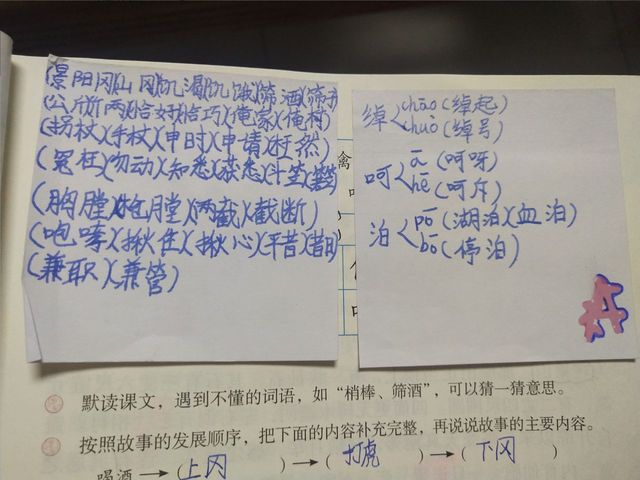 (景阳冈)(山冈)(饥渴)(饥饿)(筛酒)(筛子)
(公斤)(两)(恰好)(恰巧)(俺家)(俺村)
(拐杖)(手杖)(申时)(申请)(枉然)
(冤枉)(勿动)(知悉)(获悉)(斗笠)
(胸膛)(膛)(两截)(截断)
(咆哮)(揪住)(揪心)(平昔)(昔日)
(兼职)(兼管)
绰 chāo (绰起)
chuò (绰号)
呵 ā (呵呀)
hē (呵斥)
泊 pō (湖泊)(血泊)
bó (停泊)
禽
默读课文，遇到不懂的词语，如“梢棒、筛酒”，可以猜一猜意思。
按照故事的发展顺序，把下面的内容补充完整，再说说故事的主要内容。
喝酒→(上冈)→(打虎)→(下冈)